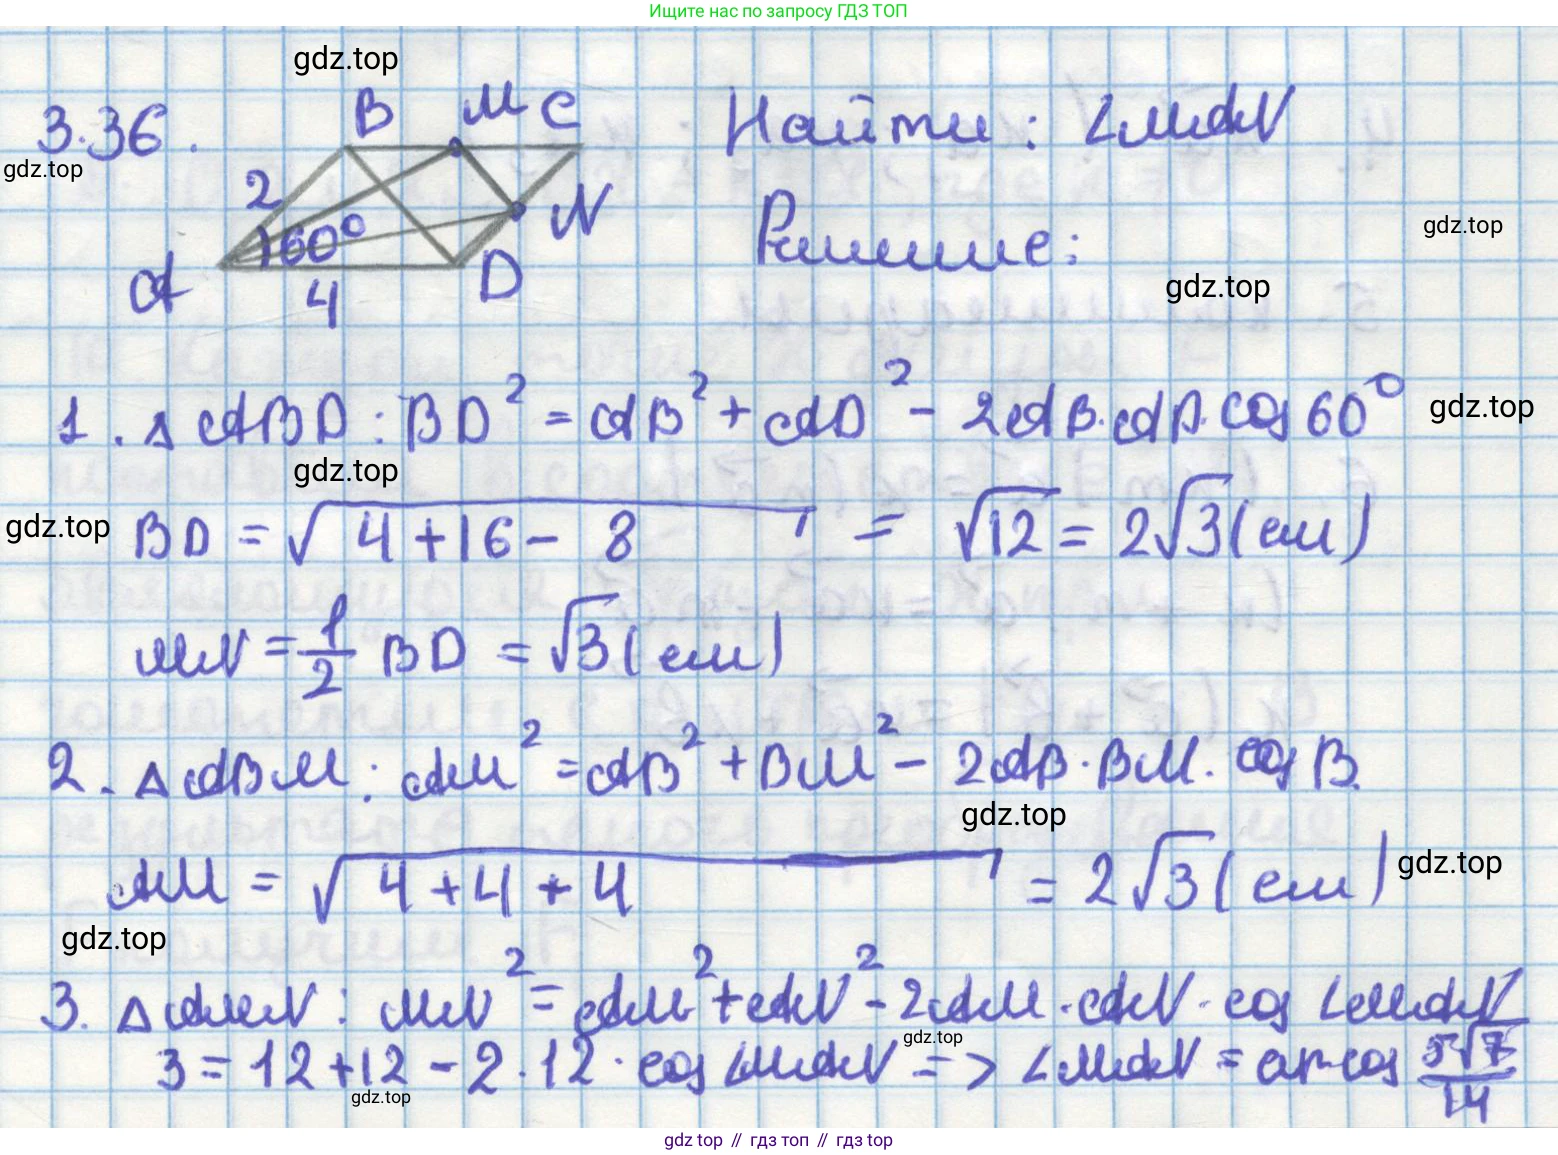 Ищите нас по запросу ГДЗ ТОП
gdz.top
3.36. B M C Найти: ∠MAN
gdz.top
2 60° N Решение:
gdz.top
A 4 D
gdz.top
1. △ ABD: BD² = AB² + AD² - 2AB·AD·cos 60°
gdz.top
gdz.top
gdz.top
BD = √4+16-8 = √12 = 2√3 (см)
MN = 1/2 BD = √3 (см)
2. △ ABM: AM² = AB² + BM² - 2AB·BM·cos B.
gdz.top
AM = √4+4+4 = 2√3 (см)
gdz.top
gdz.top
3. △ AMN: MN² = AM² + AN² - 2AM·AN·cos ∠MAN
gdz.top
3 = 12+12-2·12·cos ∠MAN => ∠MAN = arccos 5√7/14
gdz.top
gdz top // гдз топ // гдз top